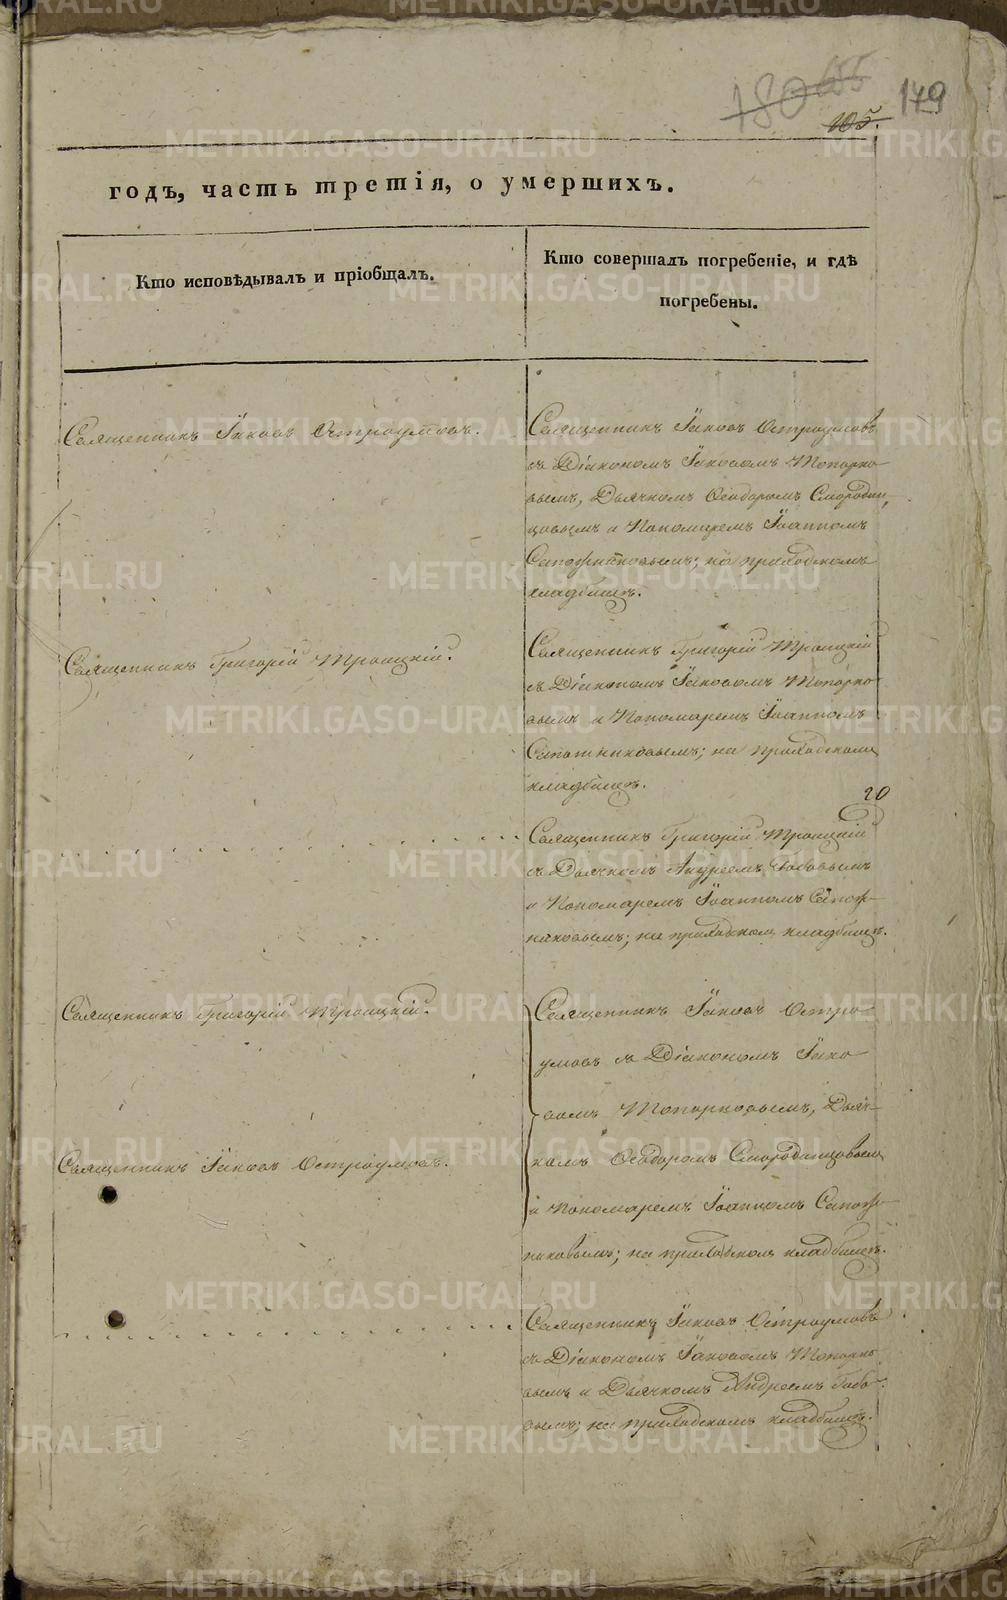 180 105.
179
годъ, часть третія, о умершихъ.
Кто исповѣдывалъ и пріобщалъ.
Кто совершалъ погребеніе, и гдѣ
погребены.
Священникъ Іаковъ Остроумовъ.
Священникъ Іаковъ Остроумовъ
съ Діакономъ Іаковомъ Топорко-
вымъ, Дьячкомъ Ѳеодоромъ Смородин-
цовымъ и Пономаремъ Іоанномъ
Сапожниковымъ; на приходскомъ
кладбищѣ.
Священникъ Григорій Троицкій.
Священникъ Григорій Троицкій
съ Діакономъ Іаковомъ Топорко-
вымъ и Пономаремъ Іоанномъ
Сапожниковымъ; на приходскомъ
кладбищѣ.
20
Священникъ Григорій Троицкій
съ Дьячкомъ Андреемъ Бабовымъ
и Пономаремъ Іоанномъ Сапож-
никовымъ; на приходскомъ кладбищѣ.
Священникъ Григорій Троицкій.
Священникъ Іаковъ Остро-
умовъ съ Діакономъ Іако-
вомъ Топорковымъ, Дьяч-
Священникъ Іаковъ Остроумовъ.
комъ Ѳеодоромъ Смородинцовымъ
и Пономаремъ Іоанномъ Сапож-
никовымъ; на приходскомъ кладбищѣ.
Священникъ Іаковъ Остроумовъ
съ Діакономъ Іаковомъ Топорко-
вымъ и Дьячкомъ Андреемъ Бабо-
вымъ; на приходскомъ кладбищѣ.
METRIKI.GASO-URAL.RU